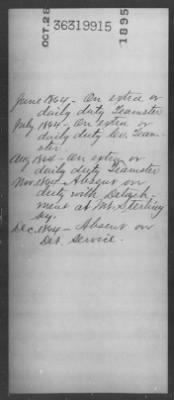 OCT. 28
36319915
1895
June 1864 - On extra or
daily duty Teamster
July 1864 - On extra or
daily duty Co. Team-
ster
Aug 1864 - On extra or
daily duty Teamster
Nov. 1864 - Absent on
duty with Detach-
ment at Mt. Sterling
Ky.
Dec 1864 - Absent on
Det. Service.